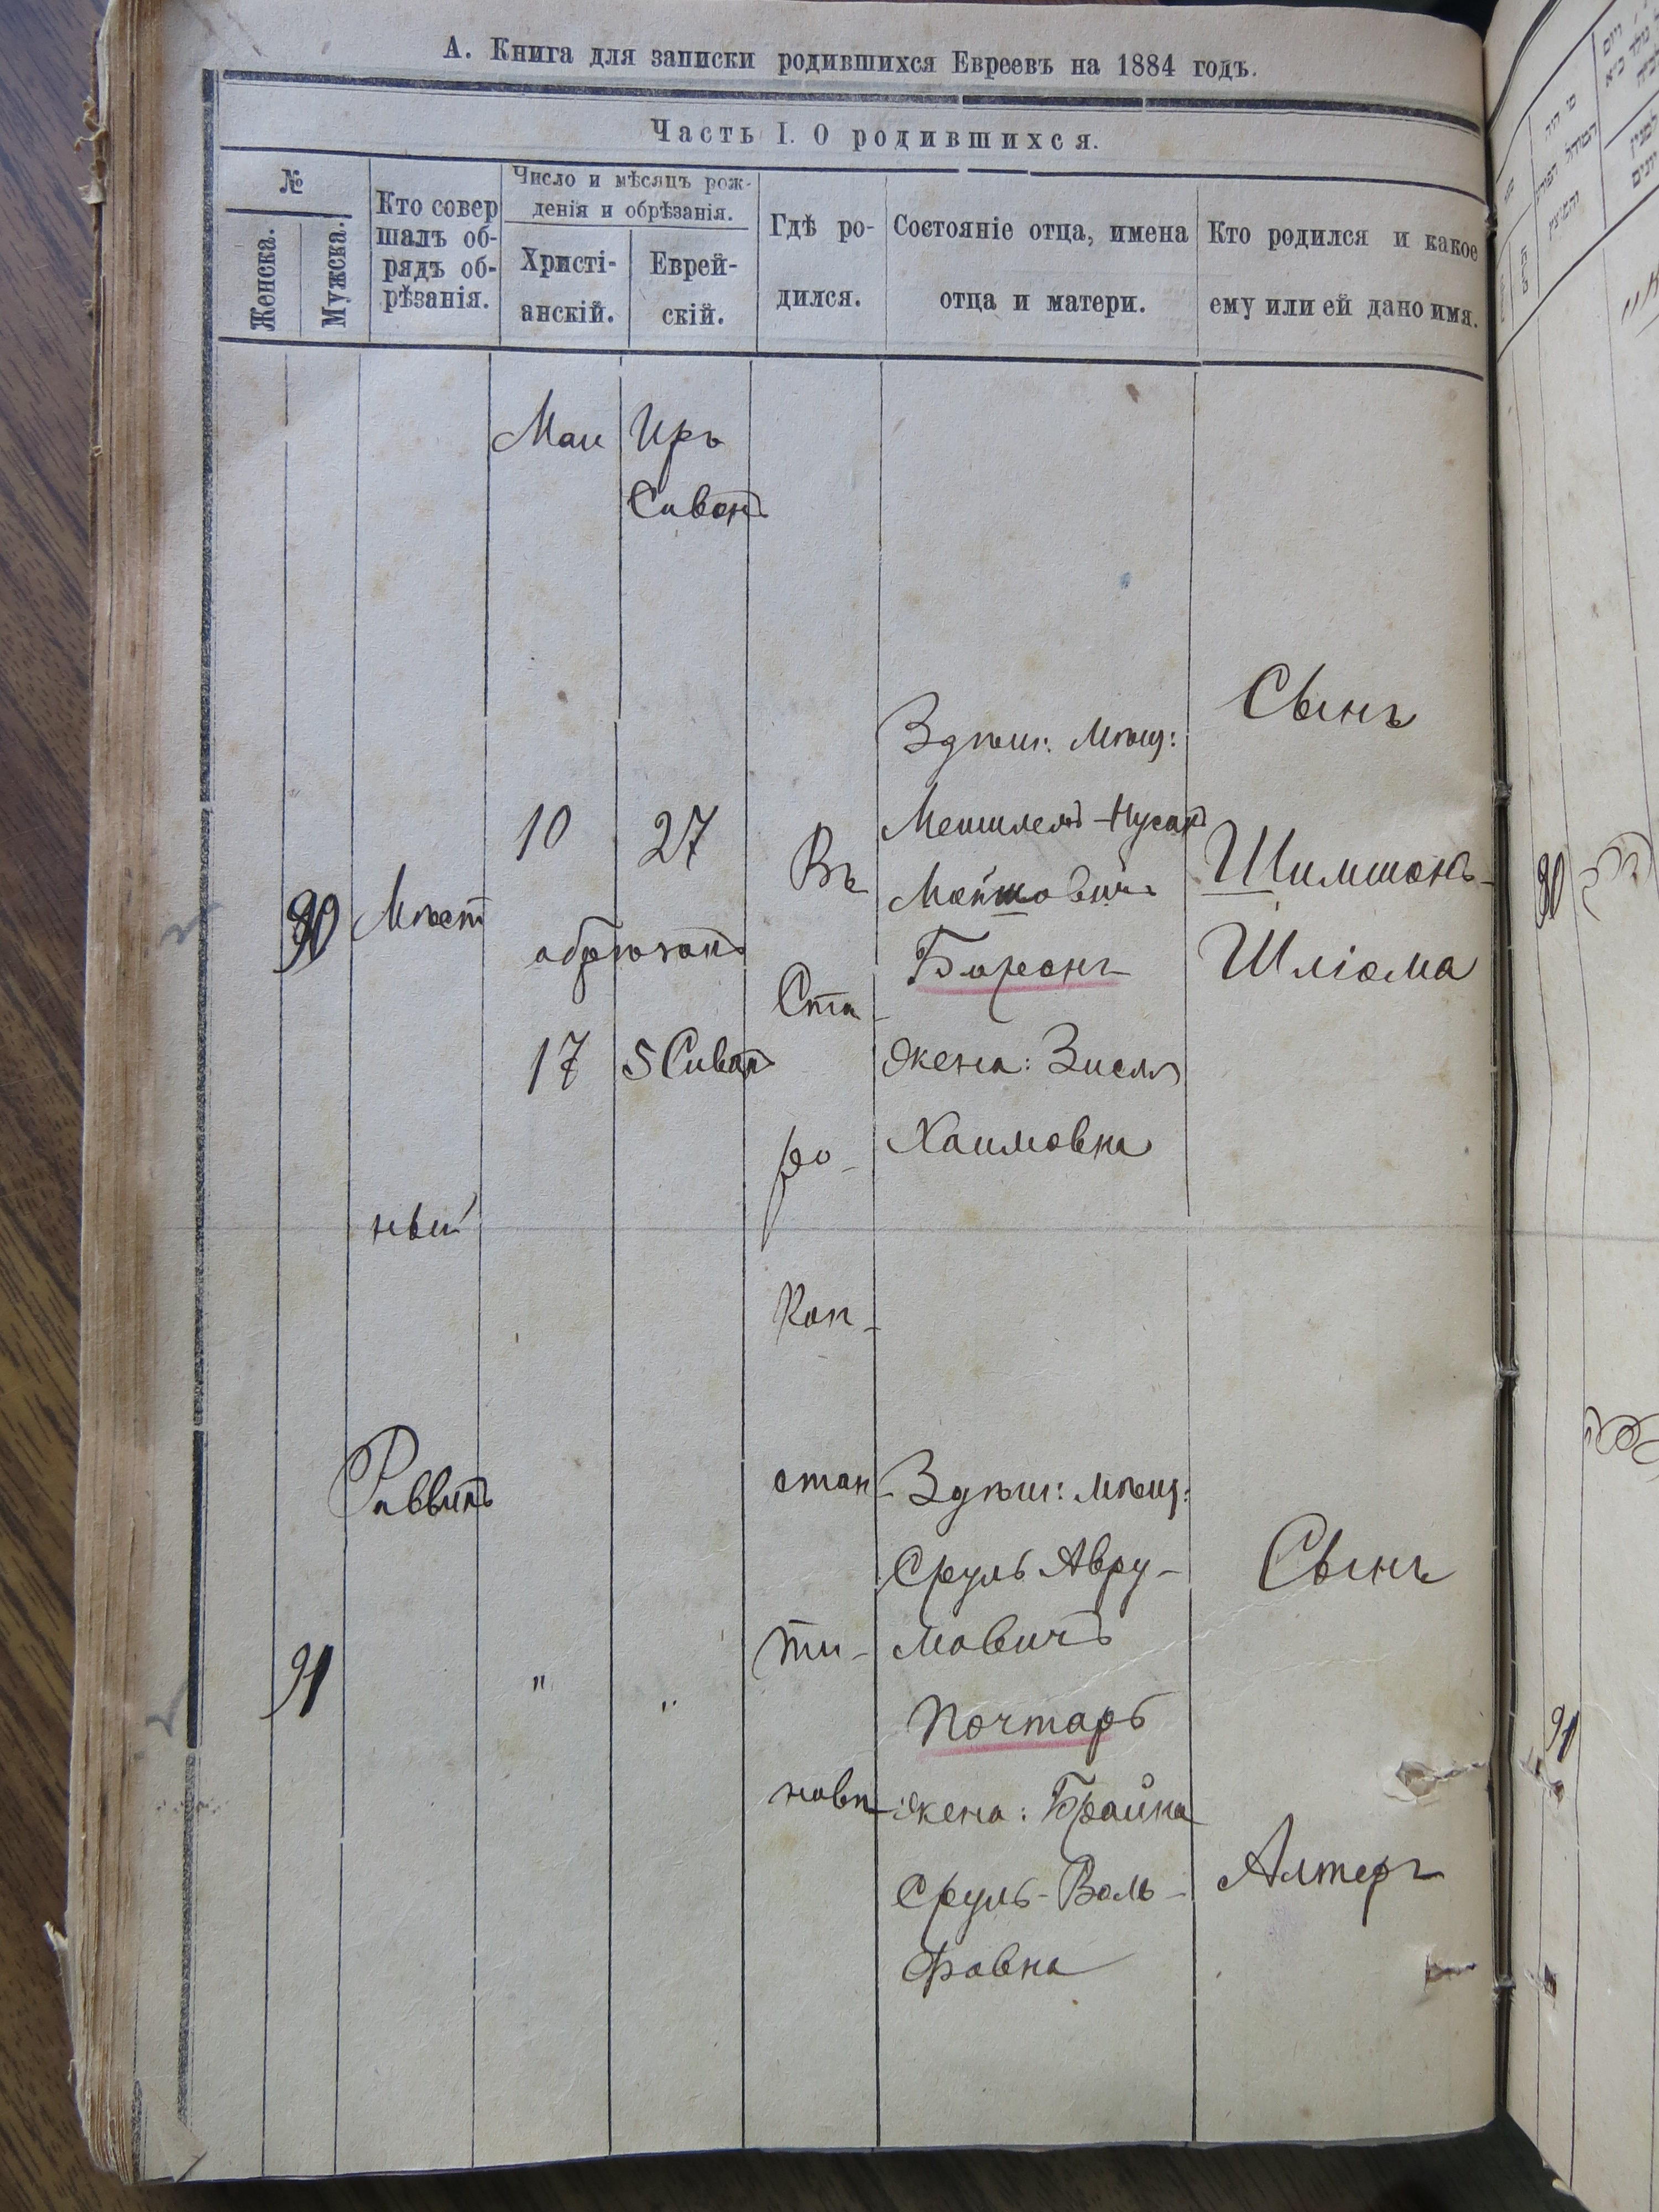 А. Книга для записки родившихся Евреевъ на 1884 годъ.
Часть I. О родившихся.
№
Женска.
Мужска.
Кто совер
шалъ об-
рядъ об-
рѣзанія.
Число и мѣсяцъ рож-
денія и обрѣзанія.
Христі-
анскій.
Еврей-
скій.
Гдѣ ро-
дился.
Состояніе отца, имена
отца и матери.
Кто родился и какое
ему или ей дано имя.
Маи
Иръ
Сиванъ
90
Мѣст
ный
Раввинъ
10
27
обрѣзанъ
17
5 Сиванъ
Въ
Ста
ро-
Кон-
стан-
ти-
новѣ
Здѣш: мѣщ:
Мошковичъ
Жена: Зисля
Хаимовна
Сынъ
Шимшонъ-
Шліома
91
"
"
Здѣш: мѣщ:
Сруль Авру-
мовичъ
Почтаръ
жена: Брайна
Сруль-Воль-
фовна
Сынъ
Алтеръ
90
91